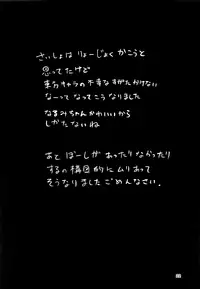 さいしょは りょーじょく かこうと
思ってたけど
東方キャラの不幸なすがたかけない
なーって なってこうなりました
なずみちゃんかわいいから
しかたないね
あと ぼーしが あったりなかったり
するの構図的にムリあって
そうなりましたごめんなさい.